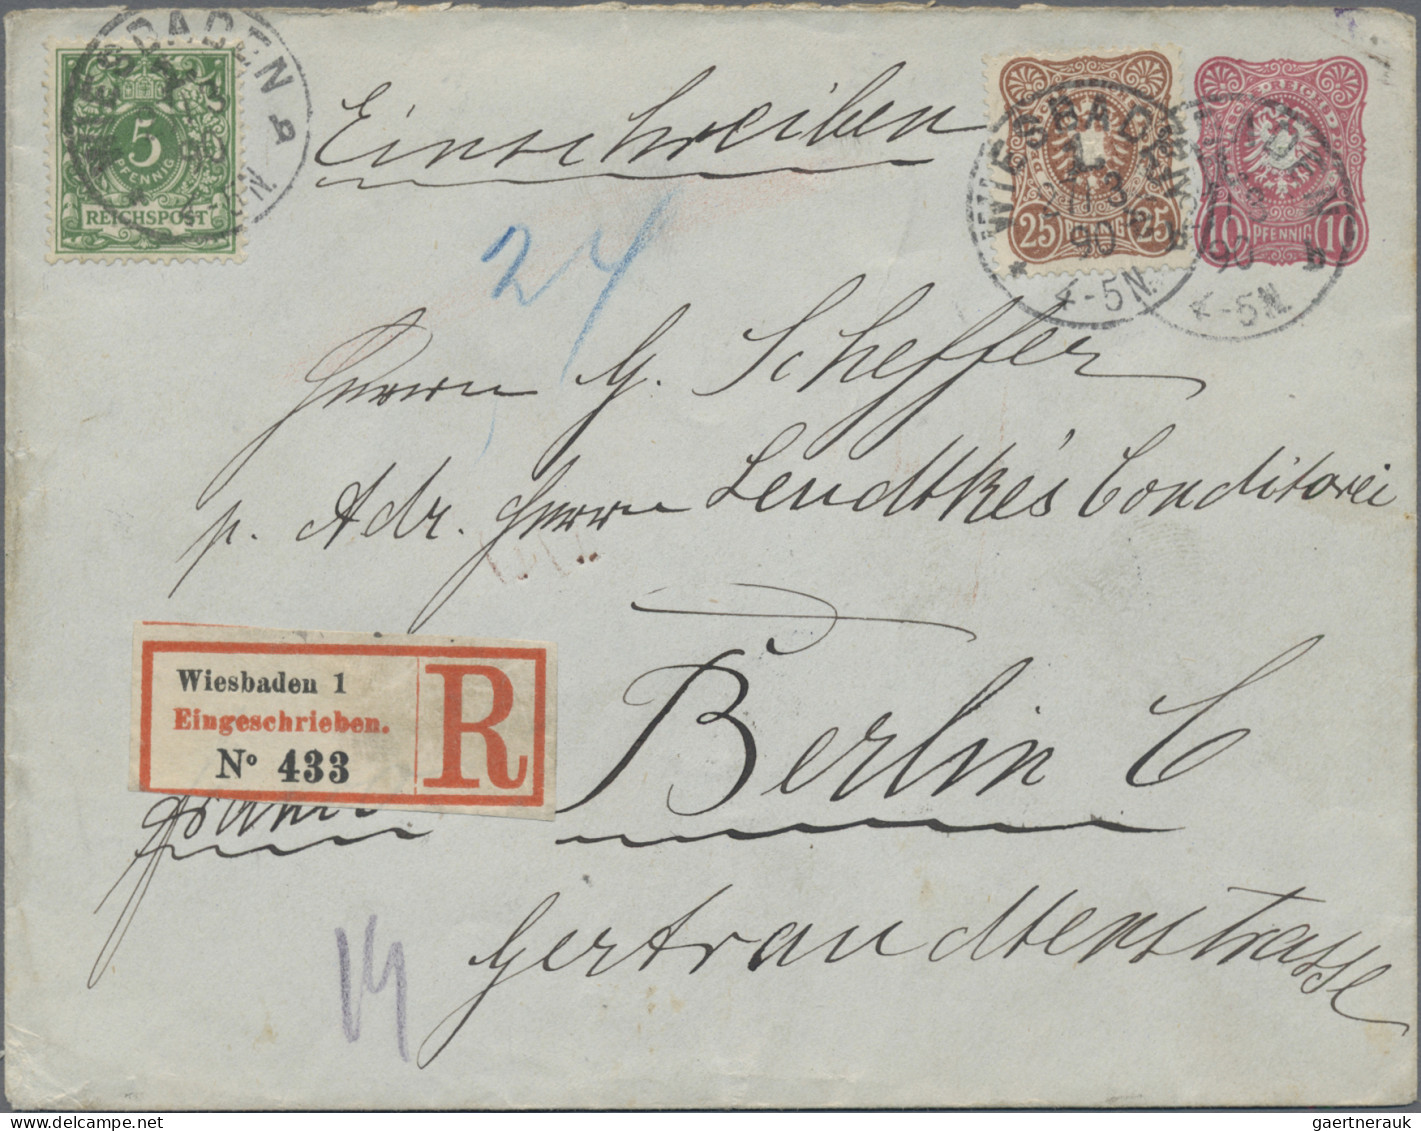 WIESBADEN
5
PFENNIG
REICHSPOST
Einschreiben
25 PFENNIG 25
WIESBADEN
3
90
4-5N.
10 PFENNIG 10
90
4-5N.
24
Herrn G. Scheffer
p. Adr. Herrn Lendtke's Conditorei
Wiesbaden 1
Eingeschrieben.
No 433
R
Berlin C
franco
Gertraudtenstrasse
14
gaertnerauk